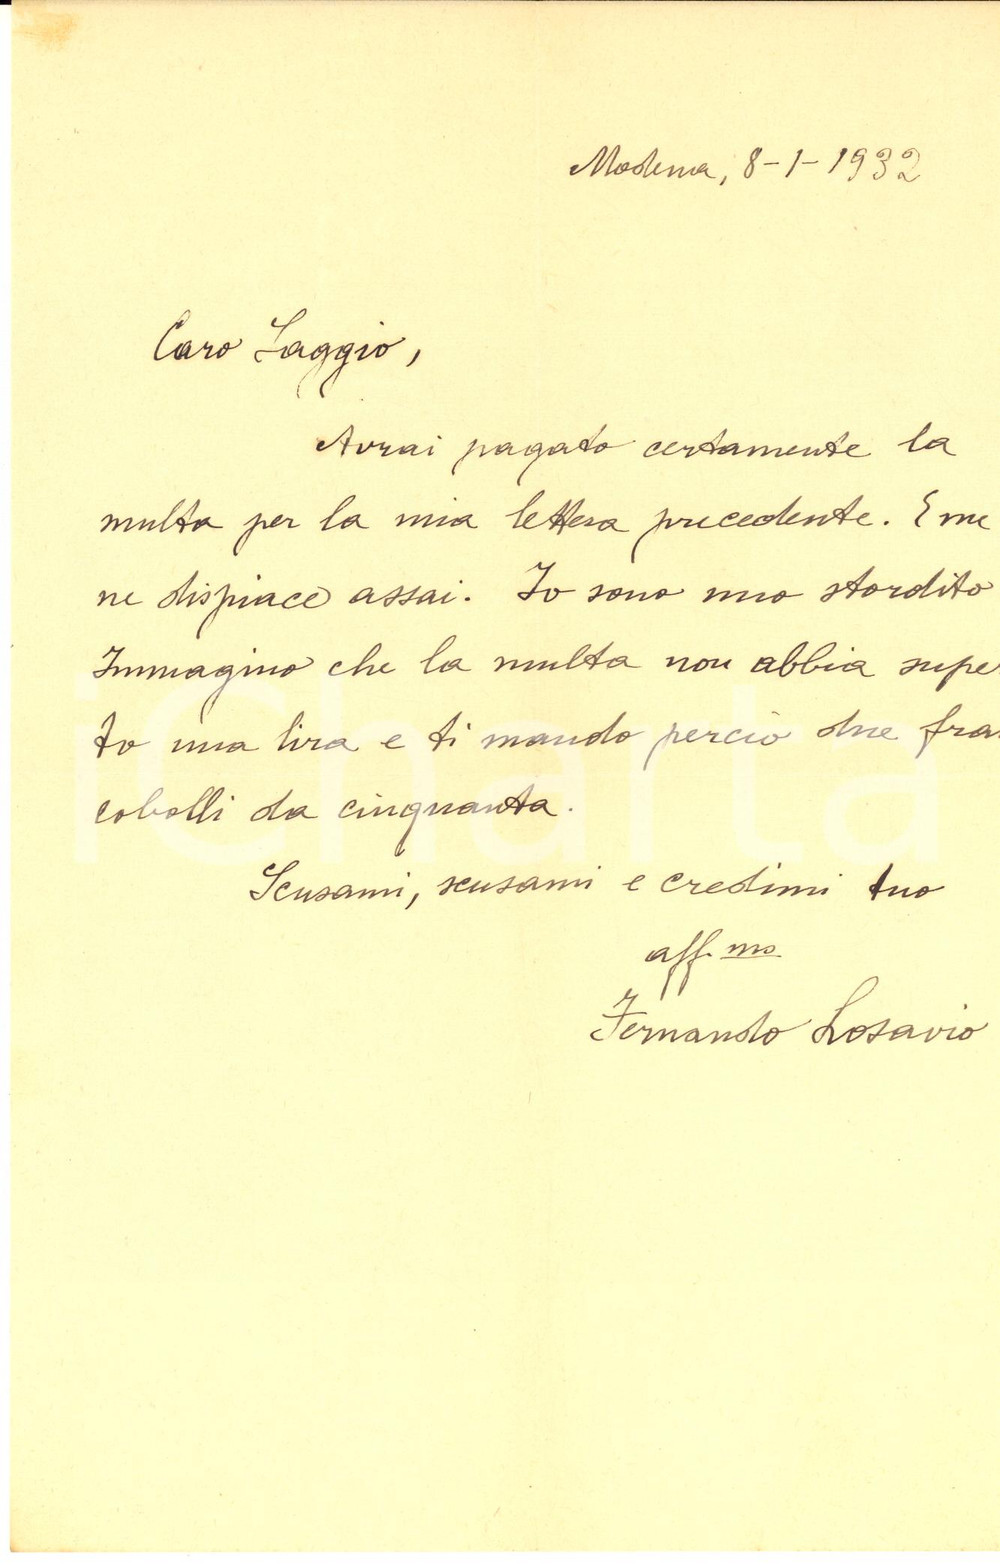 Modena, 8-1-1932
Caro Saggio,
Avrai pagato certamente la
multa per la mia lettera precedente. E me
ne dispiace assai. Io sono uno stordito
Immagino che la multa non abbia supe
to una lira e ti mando perciò due fra
cobolli da cinquanta.
Scusami, scusami e credimi tuo
aff.mo
Fernando Losavio
iCharta